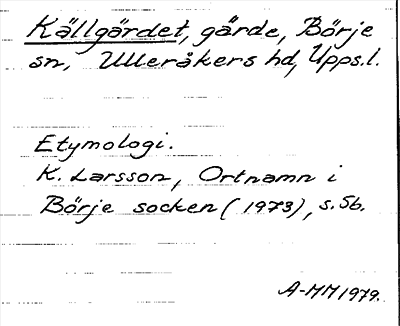 Källgärdet, gärde, Börje
sn, Ulleråkers hd, Upps.l.
Etymologi.
K. Larsson, Ortnamn i
Börje socken (1973), s.56.
A-MM1979.